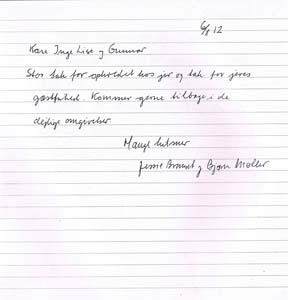 6/8 12
Kære Inge Lise og Gunnar
Stor tak for opholdet hos jer og tak for jeres
gæstfrihed. Kommer gerne tilbage i de
dejlige omgivelser
Mange hilsner
og Bjørn Møller